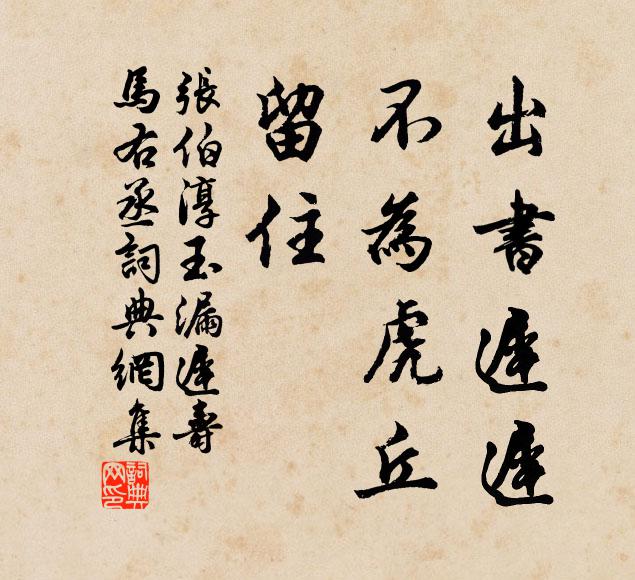 出書遲遲
不為虎丘
留住
張伯淳玉漏遲壽
馬右丞詞典網集
詞典网印